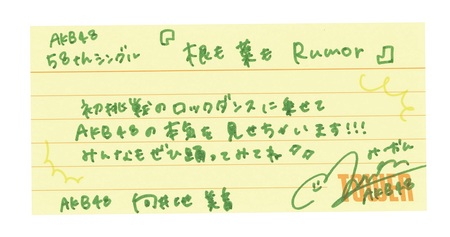 AKB48
58thシングル 『根も葉もRumor』
初挑戦のロックダンスに乗せて
AKB48の本気を見せちゃいます!!!
みんなもぜひ踊ってみてね♪♪
みーおん
AKB48 向井地 美音
TOWER
AKB48